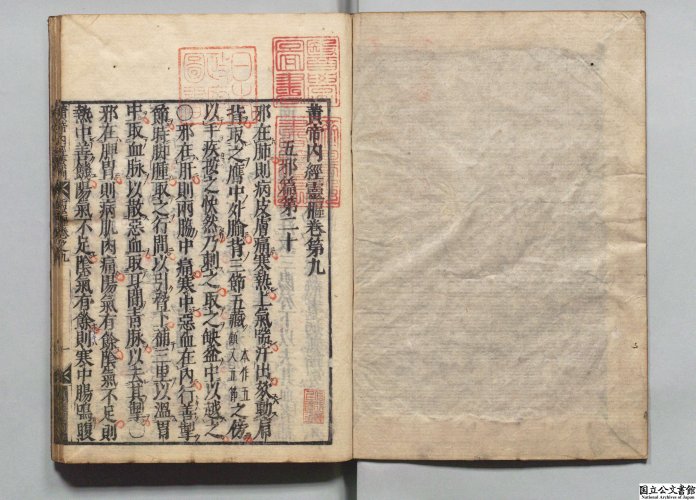 黄帝内經靈樞卷第九
五邪篇第二十
邪在肺則病皮膚痛寒熱上氣喘汗出欬動肩
背取之膺中外腧背三節五藏之傍
以手疾按之快然乃刺之取之缺盆中以越之
邪在肝則兩脇中痛寒中惡血在内行善掣
節時脚腫取之行間以引脇下補三里以温胃
中取血脉以散惡血取耳間青脉以去其掣
邪在脾胃則病肌肉痛陽氣有餘陰氣不足則
熱中善饑陽氣不足陰氣有餘則寒中腸鳴腹
国立公文書館
National Archives of Japan